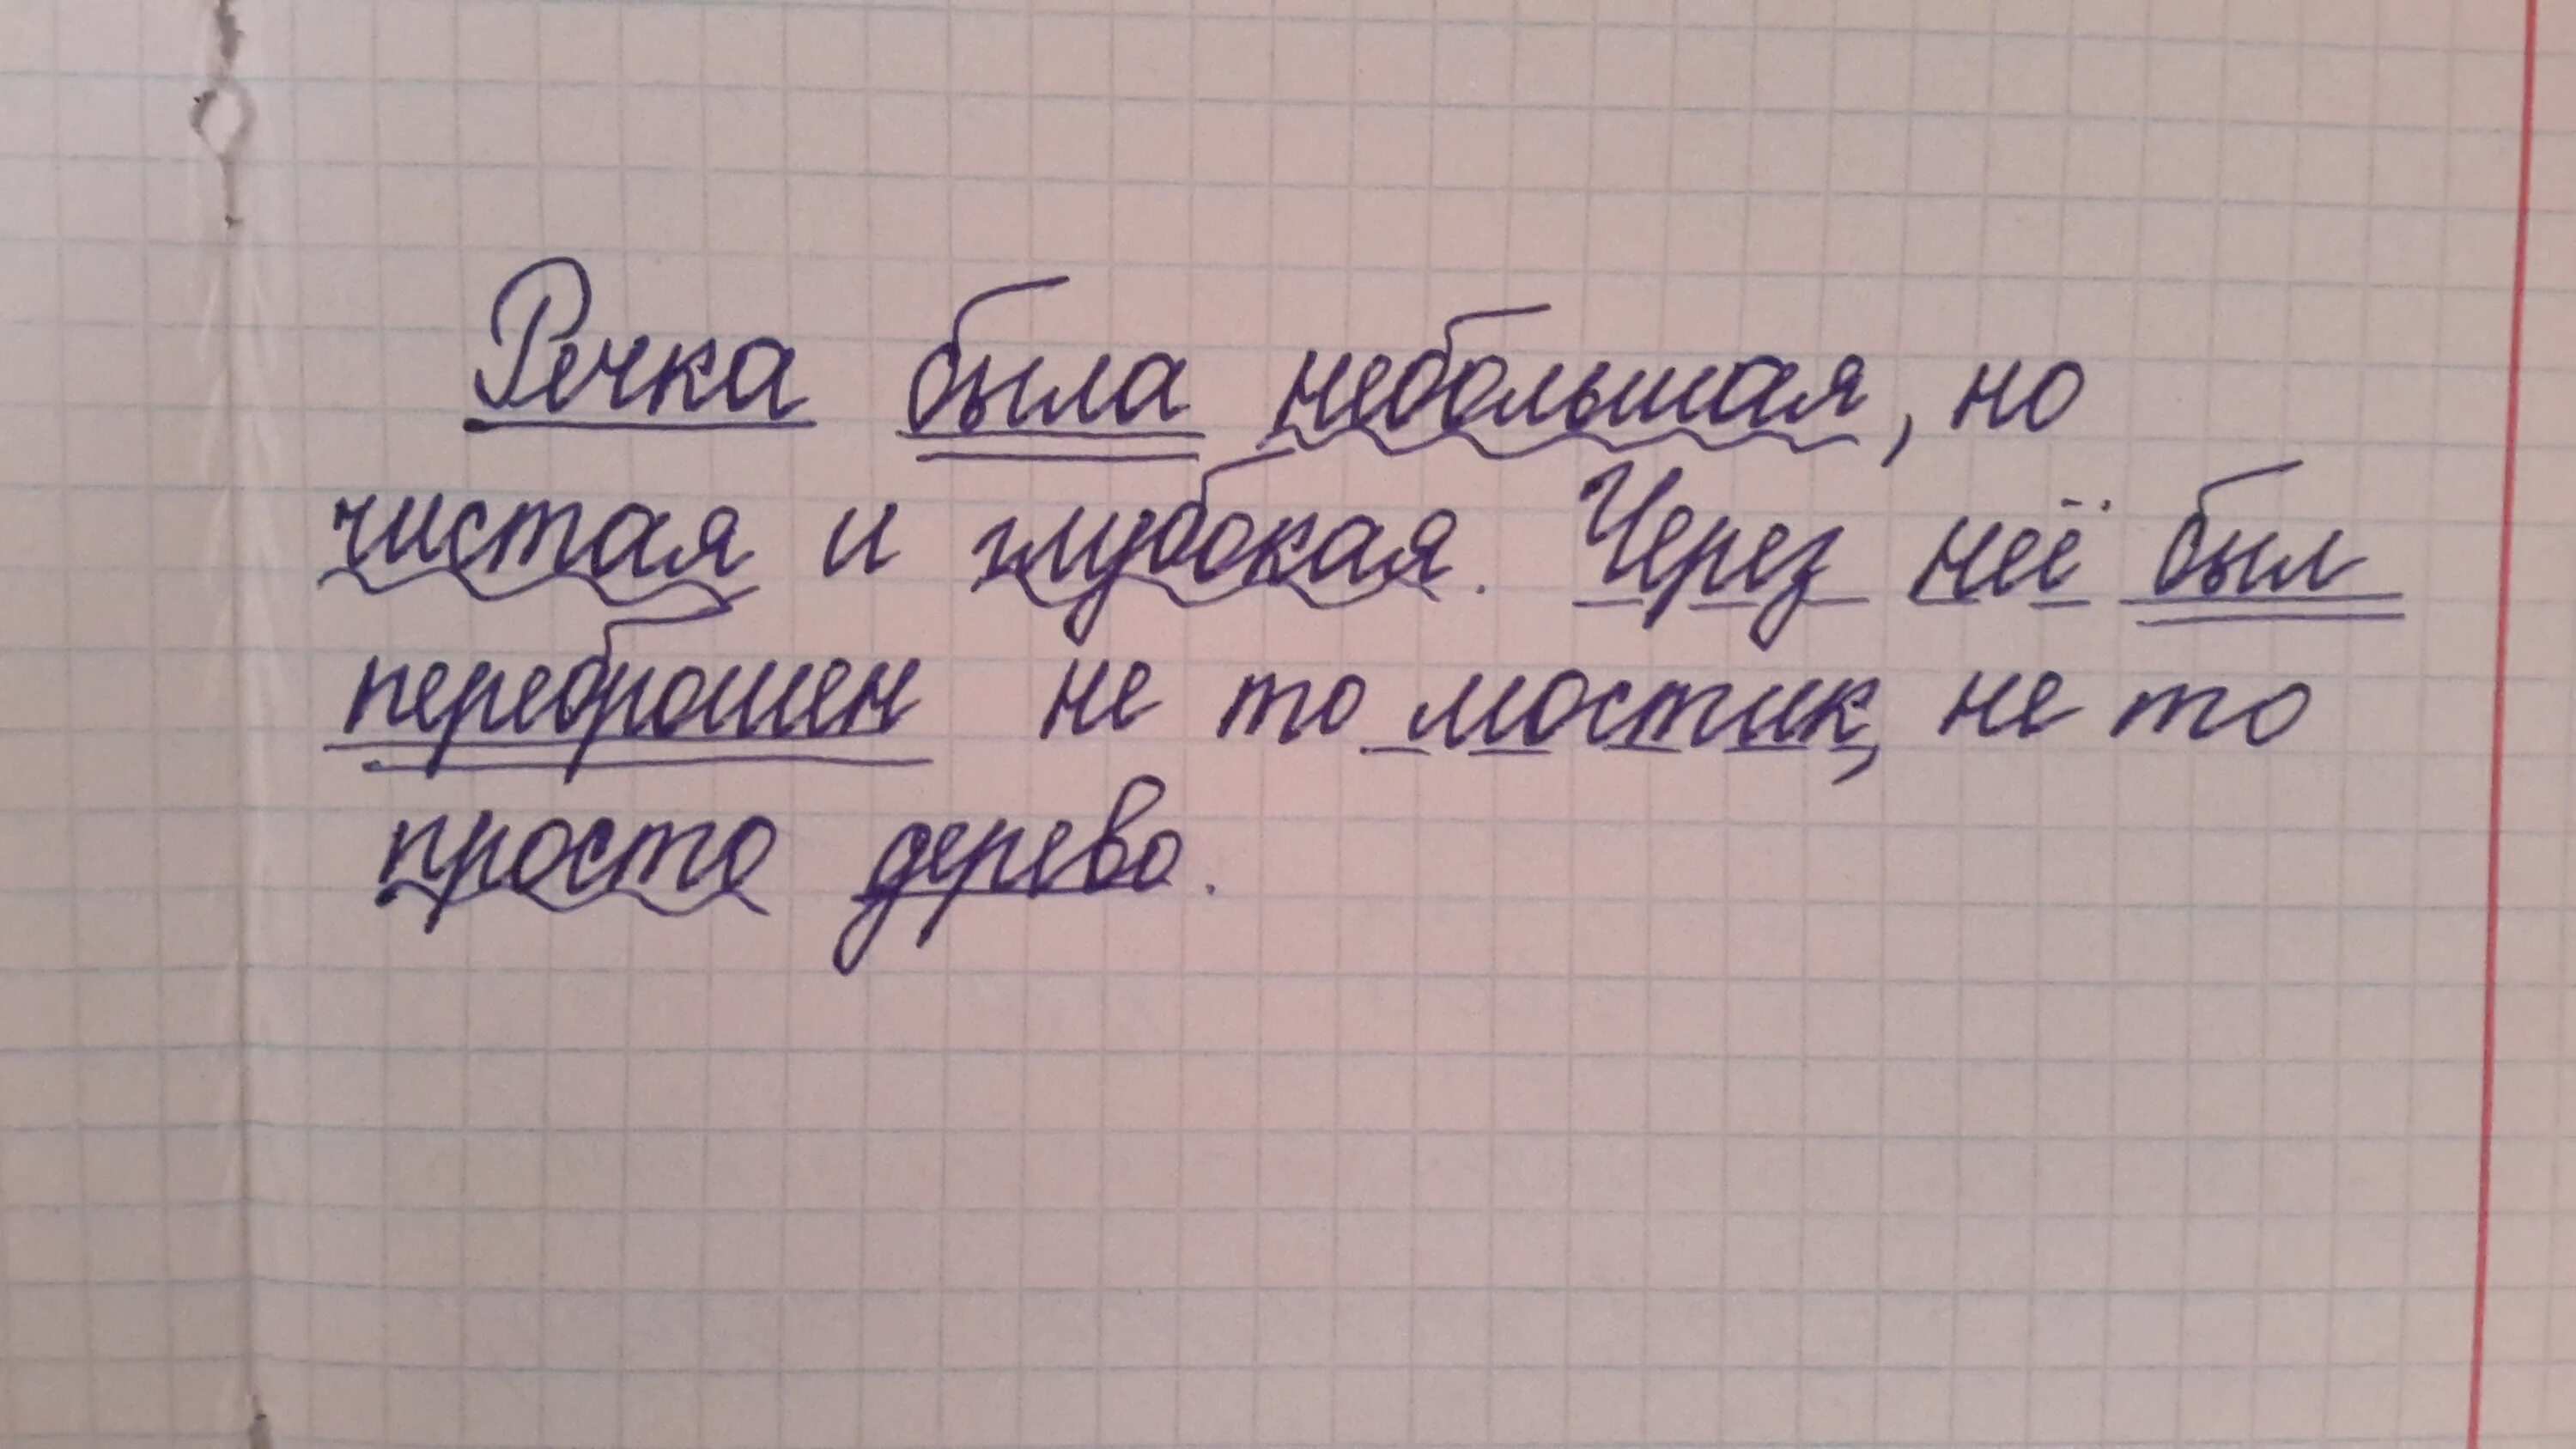 Речка была небольшая, но
чистая и глубокая. Через неё был
переброшен не то мостик, не то
просто дерево.